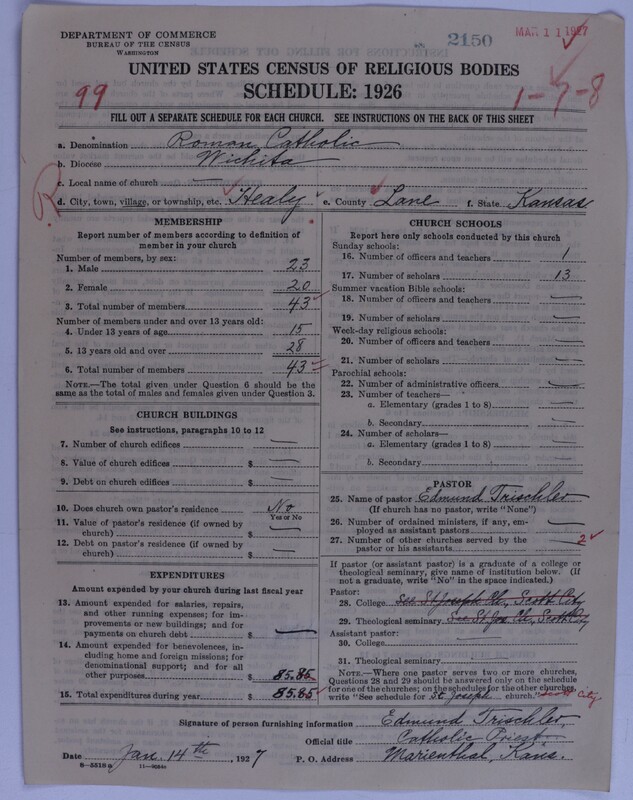 DEPARTMENT OF COMMERCE
BUREAU OF THE CENSUS
WASHINGTON
2150
MAR 11 1927
UNITED STATES CENSUS OF RELIGIOUS BODIES
SCHEDULE: 1926
99
1-7-8
FILL OUT A SEPARATE SCHEDULE FOR EACH CHURCH. SEE INSTRUCTIONS ON THE BACK OF THIS SHEET
a. Denomination Roman Catholic
b. Diocese Wichita
c. Local name of church —
R
d. City, town, village, or township, etc. Healy e. County Lane f. State Kansas
MEMBERSHIP
Report number of members according to definition of
member in your church
Number of members, by sex:
1. Male 23
2. Female 20
3. Total number of members 43
Number of members under and over 13 years old:
4. Under 13 years of age 15
5. 13 years old and over 28
6. Total number of members 43
NOTE.—The total given under Question 6 should be
same as the total of males and females given under Question 3.
CHURCH BUILDINGS
See instructions, paragraphs 10 to 12
7. Number of church edifices —
8. Value of church edifices $ —
9. Debt on church edifices $ —
10. Does church own pastor's residence No
Yes or No
11. Value of pastor's residence (if owned by
church) $ —
12. Debt on pastor's residence (if owned by
church) $ —
EXPENDITURES
Amount expended by your church during last fiscal year
13. Amount expended for salaries, repairs,
and other running expenses; for im-
provements or new buildings; and for
payments on church debt $ —
14. Amount expended for benevolences, in-
cluding home and foreign missions; for
denominational support; and for all
other purposes $ 85.85
15. Total expenditures during year $ 85.85
CHURCH SCHOOLS
Report here only schools conducted by this church
Sunday schools:
16. Number of officers and teachers 1
17. Number of scholars 13
Summer vacation Bible schools:
18. Number of officers and teachers —
19. Number of scholars —
Week-day religious schools:
20. Number of officers and teachers —
21. Number of scholars —
Parochial schools:
22. Number of administrative officers —
23. Number of teachers—
a. Elementary (grades 1 to 8) —
b. Secondary —
24. Number of scholars—
a. Elementary (grades 1 to 8) —
b. Secondary —
PASTOR
25. Name of pastor Edmund Trischler
(If church has no pastor, write "None")
26. Number of ordained ministers, if any, em-
ployed as assistant pastors —
27. Number of other churches served by the
pastor or his assistants 2
If pastor (or assistant pastor) is a graduate of a college or
theological seminary, give name of institution below. (If
not a graduate, write "No" in the space indicated.)
Pastor:
28. College See St Joseph Ch., Scott City
29. Theological seminary See St Jos Ch, Scott City
Assistant pastor:
30. College
31. Theological seminary
NOTE.—Where one pastor serves two or more churches,
Questions 28 and 29 should be answered only on the schedule
for one of the churches; on the schedules for the other churches,
write "See schedule for St. Joseph church." Scott City
Signature of person furnishing information Edmund Trischler
Official title Catholic Priest
Date Jan. 14th, 1927 P. O. Address Marienthal, Kans.